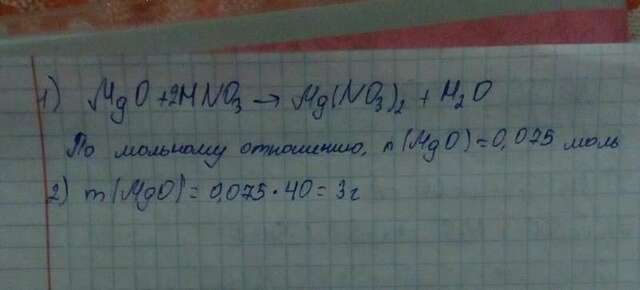 1) MgO + 2HNO₃ → Mg(NO₃)₂ + H₂O
По мольному отношению, n(MgO) = 0,075 моль
2) m(MgO) = 0,075 · 40 = 3г